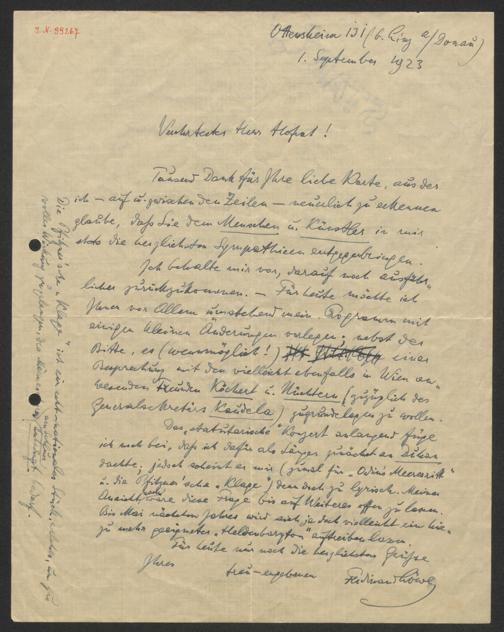 I.N. 99267
Ottensheim 131 (b. Linz a/Donau)
1. September 1923
Verehrtester Herr Hofrat!
Tausend Dank für Ihre liebe Karte, aus der
ich – auf u. zwischen den Zeilen – neuerlich zu erkennen
glaube, daß Sie dem Menschen u. Künstler in mir
stets die herzlichsten Sympathieen entgegenbringen.
Ich behalte mir vor, darauf noch ausführ-
licher zurückzukommen. – Für heute möchte ich
Ihnen vor Allem umstehend mein Programm mit
einigen kleinen Änderungen vorlegen, nebst der
Bitte, es (wenn möglich!) einer
Besprechung mit den vielleicht ebenfalls in Wien an-
wesenden Freunden Köchert u. Nüchtern (zuzüglich des
Generalsekretärs Kaudela) zugrundelegen zu wollen.
Das "statutarische" Konzert anlangend füge
ich noch bei, daß ich dafür als Sänger zunächst an Duhan
dachte; jedoch scheint er mir (zumal für "Odins Meeresritt"
u. die Pfitzner'sche "Klage") denn doch zu lyrisch. Meiner
Ansicht wäre diese Frage bis auf Weiteres offen zu lassen.
Bis Mai nächsten Jahres wird sich ja doch vielleicht ein hie-
zu mehr geeigneter "Heldenbaryton" auftreiben lassen.
Für heute nur noch die herzlichsten Grüße
Ihres
treu-ergebenen
Ferdinand Löwe
Die Pfitzner'sche "Klage" ist ein echt nationales Stück, das, um zu
voller Wirkung zu gelangen, des Männer unbedingt bedarf.